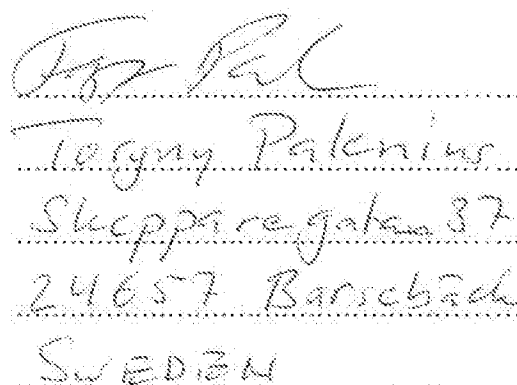 Torgny Palenius
Skepparegatan 37
24657 Barsebäck
SWEDEN